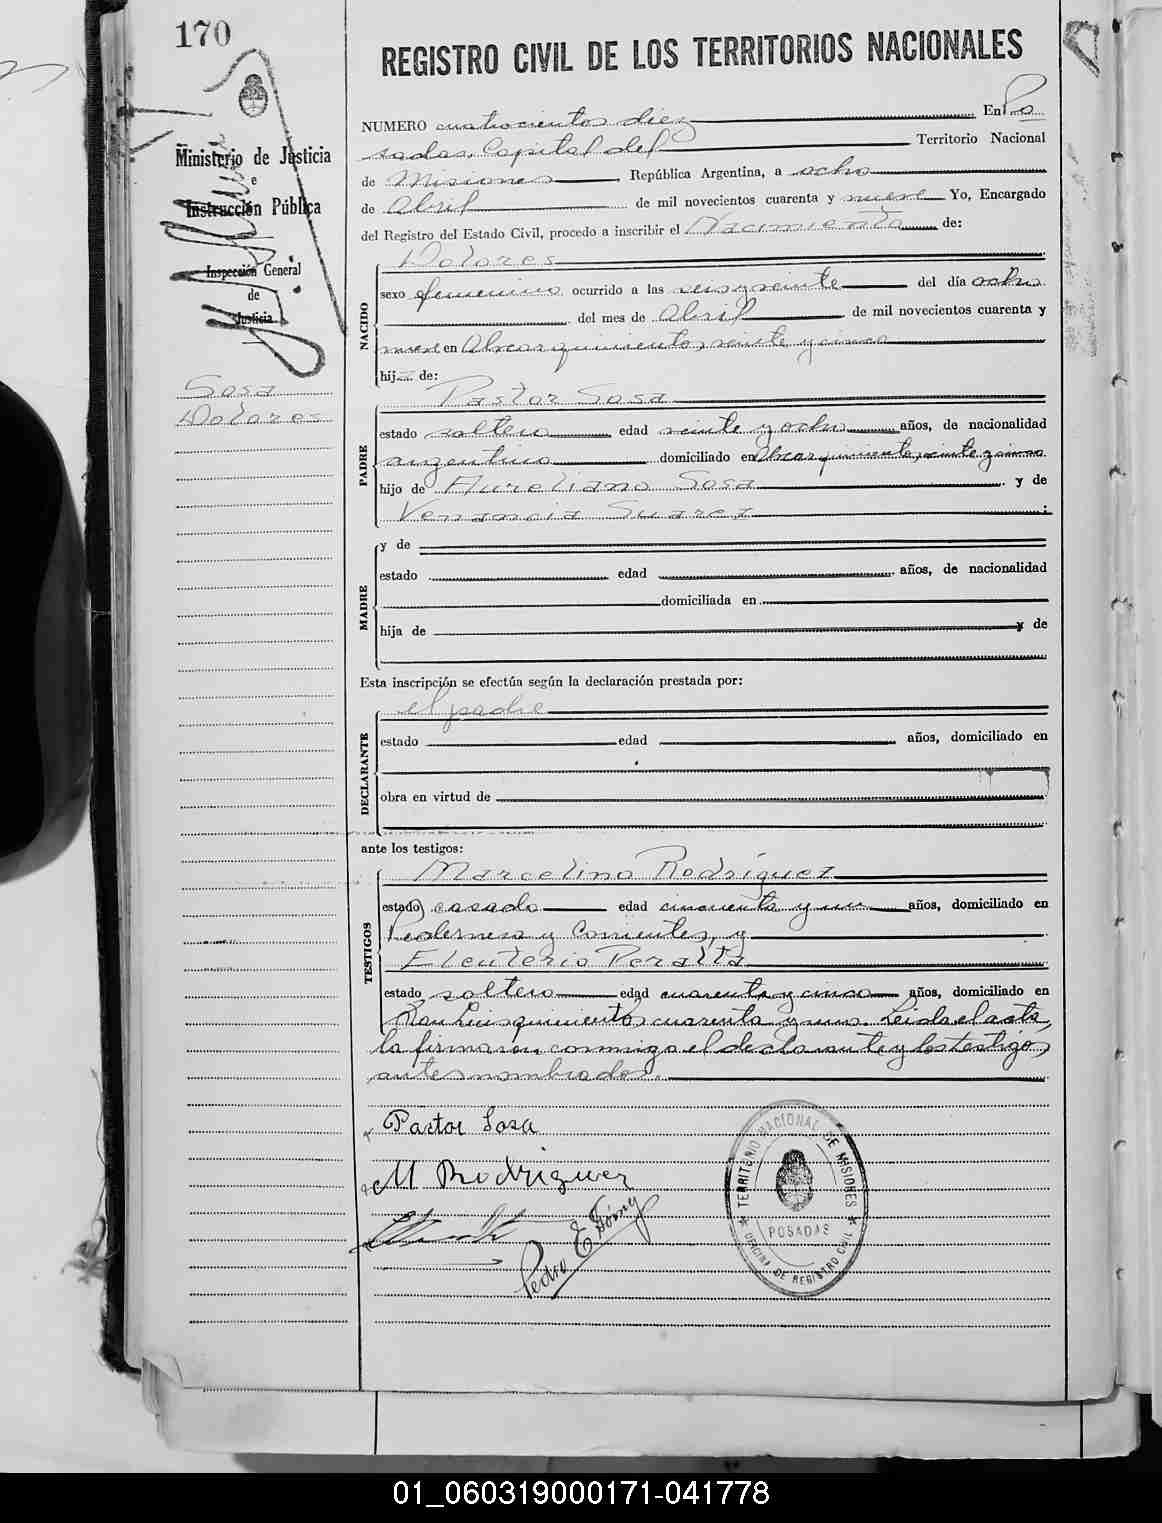 170
REGISTRO CIVIL DE LOS TERRITORIOS NACIONALES
Ministerio de Justicia
e
Instrucción Pública
Inspección General
de
Justicia
Sosa
Dolores
NUMERO cuatrocientos diez En Po
sadas, Capital del Territorio Nacional
de Misiones República Argentina, a ocho
de Abril de mil novecientos cuarenta y nueve Yo, Encargado
del Registro del Estado Civil, procedo a inscribir el Nacimiento de:
NACIDO
Dolores
sexo femenino ocurrido a las seis y veinte del día ocho
del mes de Abril de mil novecientos cuarenta y
nueve en quinientos veinte y cinco
hij de:
PADRE
Pastor Sosa
estado soltero edad veinte y ocho años, de nacionalidad
argentino domiciliado en quinientos veinte y cinco
hijo de Aureliano Sosa y de
Venancia Suarez ;
MADRE
y de
estado edad años, de nacionalidad
domiciliada en
hija de y de
Esta inscripción se efectúa según la declaración prestada por:
DECLARANTE
el padre
estado edad años, domiciliado en
obra en virtud de
ante los testigos:
TESTIGOS
Marcelino Rodriguez
estado casado edad cincuenta y un años, domiciliado en
y Corrientes, y
Eleuterio Peralta
estado soltero edad cuarenta y cinco años, domiciliado en
San Luis quinientos cuarenta y uno. Leida el acta,
la firmaron conmigo el declarante y los testigos
antes nombrados.
Pastor Sosa
M Rodriguez
Pedro E.
TERRITORIO NACIONAL DE MISIONES
POSADAS
OFICINA DE REGISTRO CIVIL
01_060319000171-041778